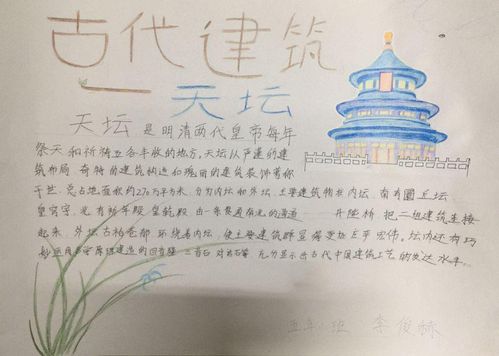 古代建筑
—天坛
天坛是明清两代皇帝每年
祭天和祈祷五谷丰收的地方,天坛以严谨的建
筑布局 奇特的建筑构造和瑰丽的建筑装饰著称
于世,总占地面积约270万平方米,分为内坛和外坛,主要建筑物在内坛,南有圜丘坛
皇穹宇,北有祈年殿 皇乾殿 由一条贯通南北的甬道——丹陛桥 把二组建筑连接
起来,外坛古柏苍郁 环绕着内坛,使主要建筑群显得更加庄严宏伟,坛内还有巧
妙运用声学原理建造的回音壁 三音石 对话石等 充分显示出古代中国建筑工艺的发达水平。
五年 班 李俊